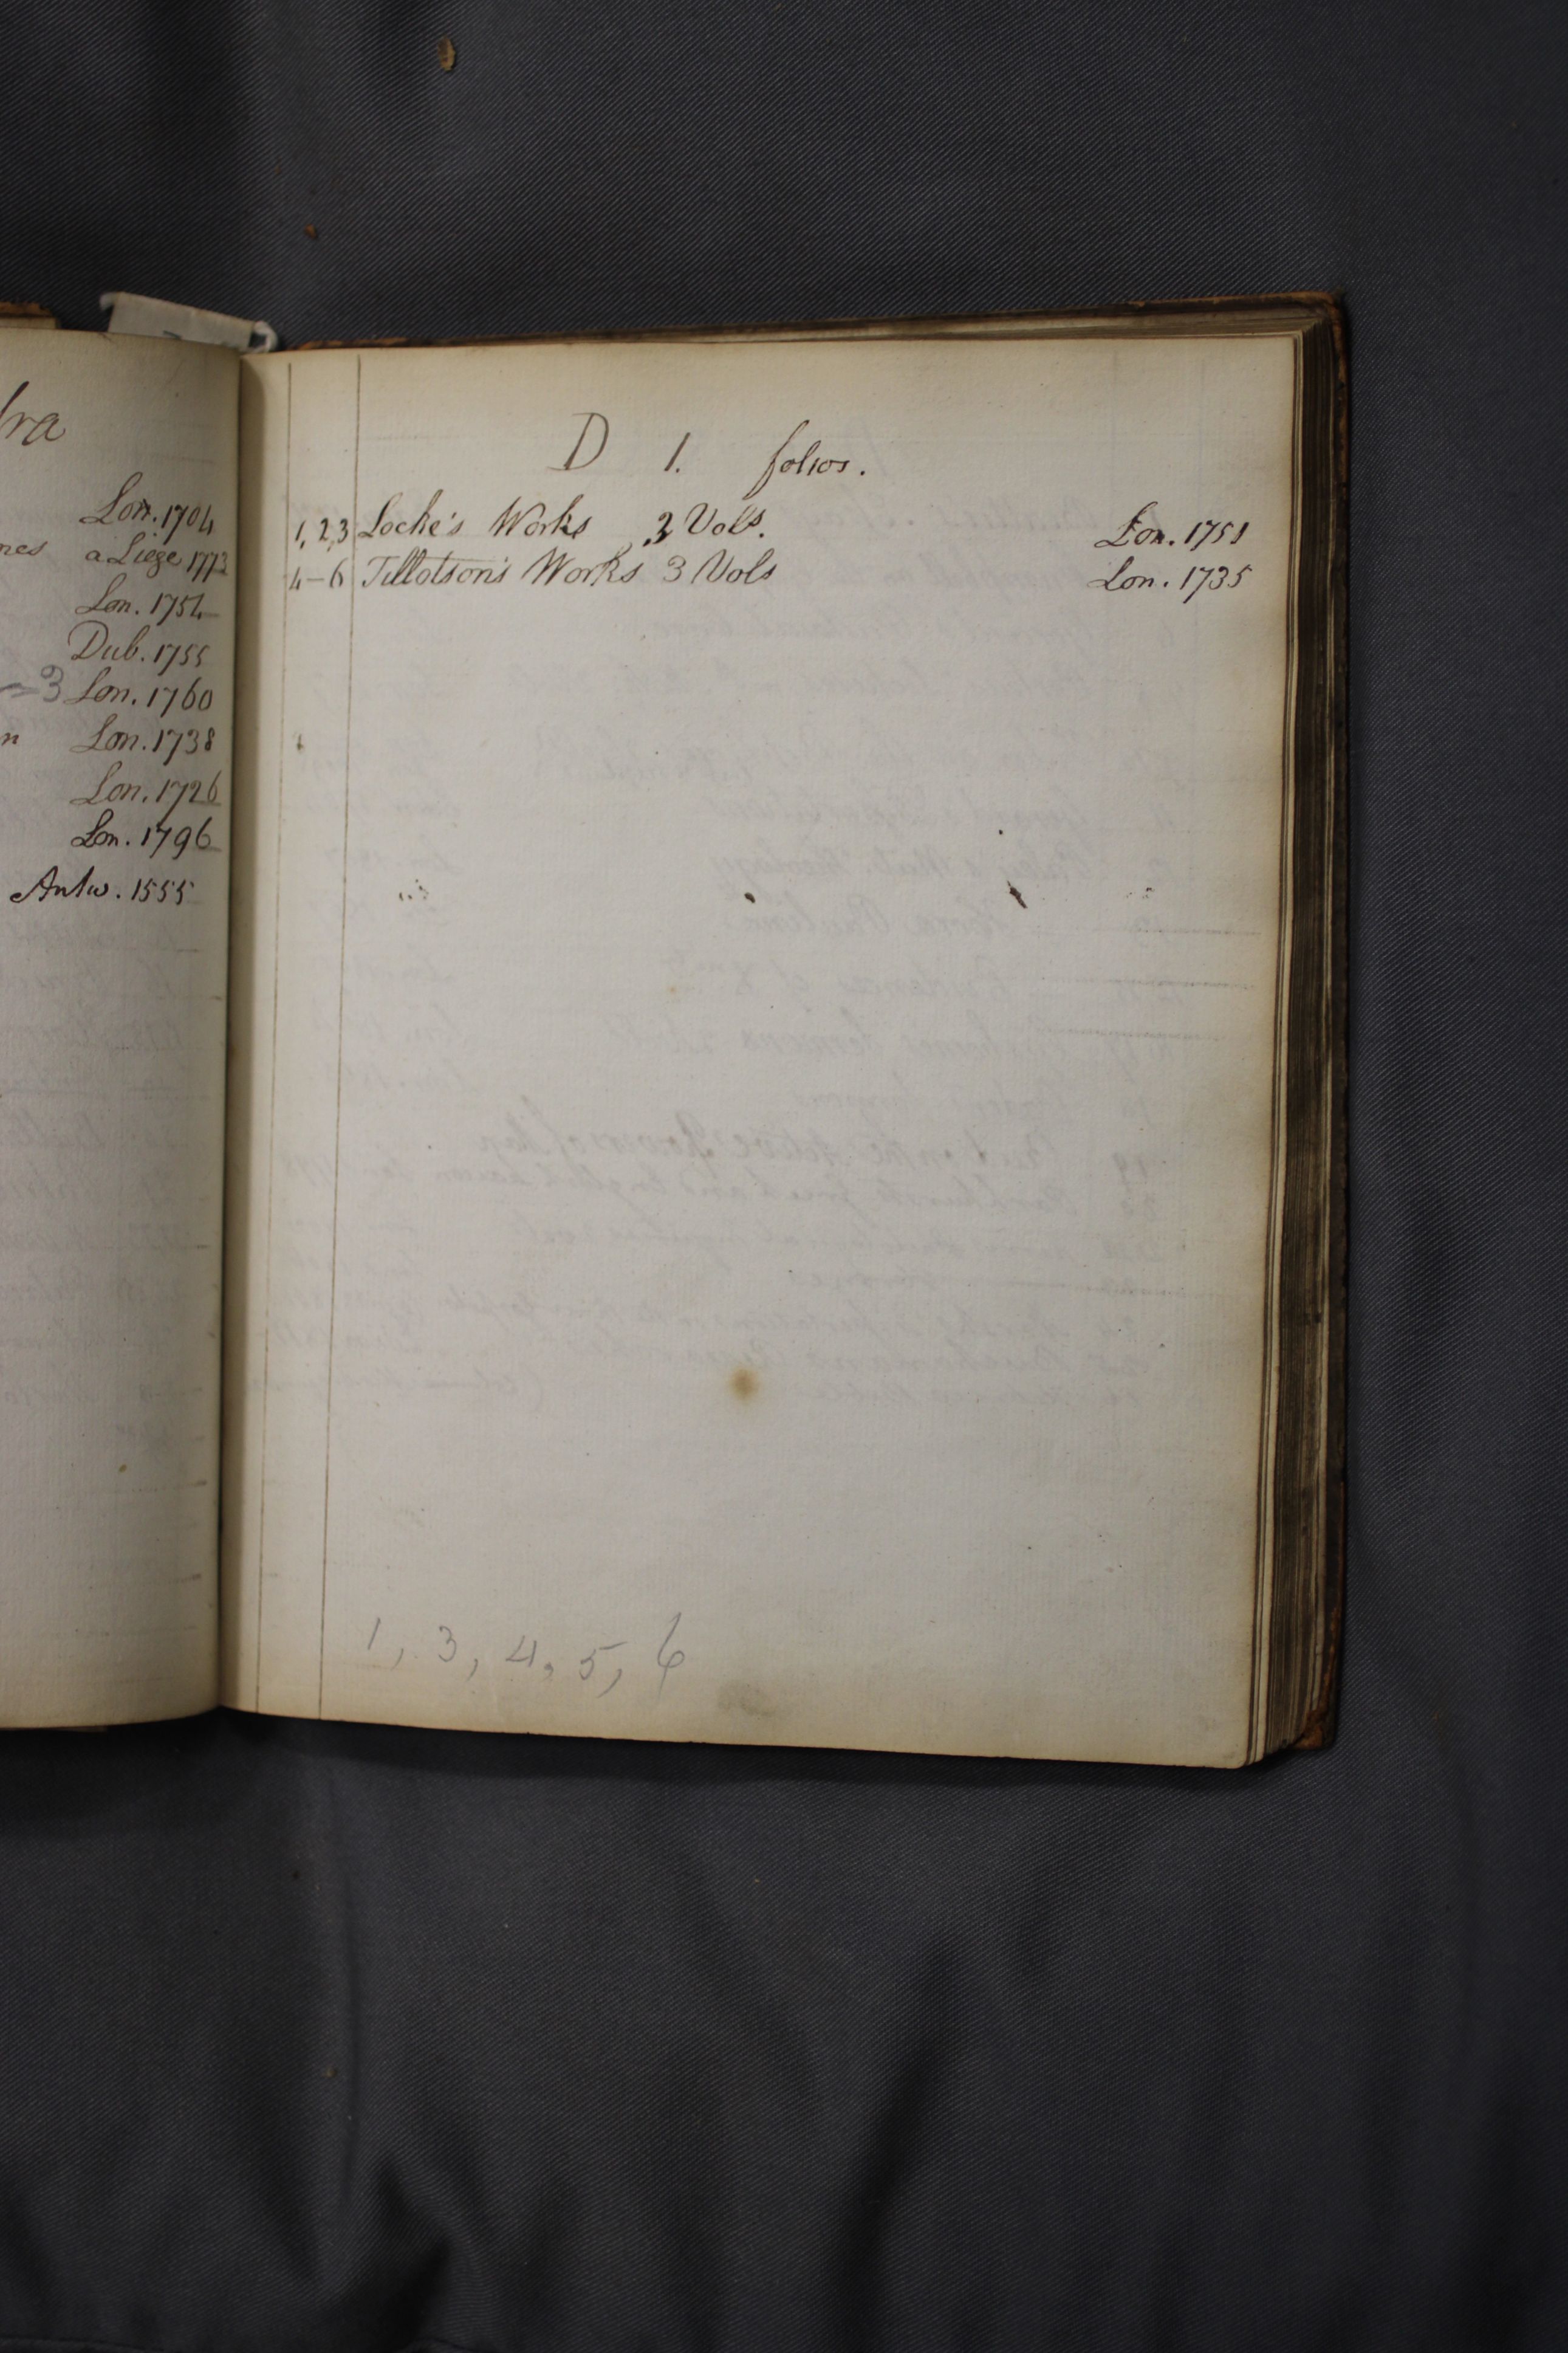 Lon. 1704
a Liege 1773
Lon. 1754
Dub. 1755
=3 Lon. 1760
Lon. 1738
Lon. 1726
Lon. 1796
Antw. 1555
D 1. folios.
1, 2, 3 Locke's Works 3 Vols. Lon. 1751
4-6 Tillotson's Works 3 Vols Lon. 1735
1, 3, 4, 5, 6